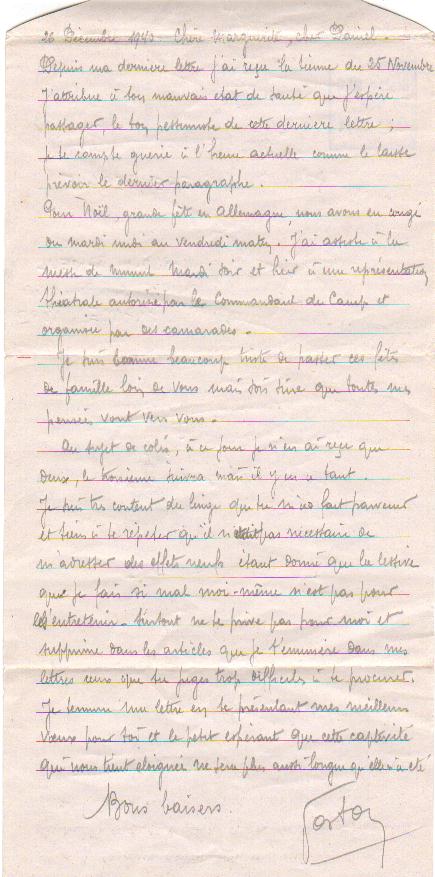 26 Décembre 1940. Chère Marguerite, cher Daniel.
Depuis ma dernière lettre j'ai reçu la tienne du 25 Novembre
J'attribue à ton mauvais état de santé que j'espère
passager, le ton pessimiste de cette dernière lettre ;
je te compte guérie à l'heure actuelle comme le laisse
prévoir le dernier paragraphe.
Pour Noël, grande fête en Allemagne, nous avons eu congé
du mardi midi au vendredi matin. J'ai assisté à la
messe de minuit Mardi soir et hier à une représentation
théatrale autorisée par le Commandant du Camp et
organisée par des camarades.
Je suis comme beaucoup triste de passer ces fêtes
de famille loin de vous mais sois sûre que toutes mes
pensées vont vers vous.
Au sujet de colis, à ce jour je n'en ai reçu que
deux, le troisième suivra mais il y en a tant.
Je suis très content du linge que tu m'as fait parvenir
et tiens à te répéter qu'il n'était pas nécessaire de
m'adresser des effets neufs étant donné que la lessive
que je fais si mal moi-même n'est pas pour
les entretenir. Surtout ne te prive pas pour moi et
supprime dans les articles que je t'énumère dans mes
lettres ceux que tu juges trop difficiles à te procurer.
Je termine ma lettre en te présentant mes meilleurs
vœux pour toi et le petit espérant que cette captivité
qui nous tient éloignés ne sera plus aussi longue qu'elle n'a été
Bons baisers.